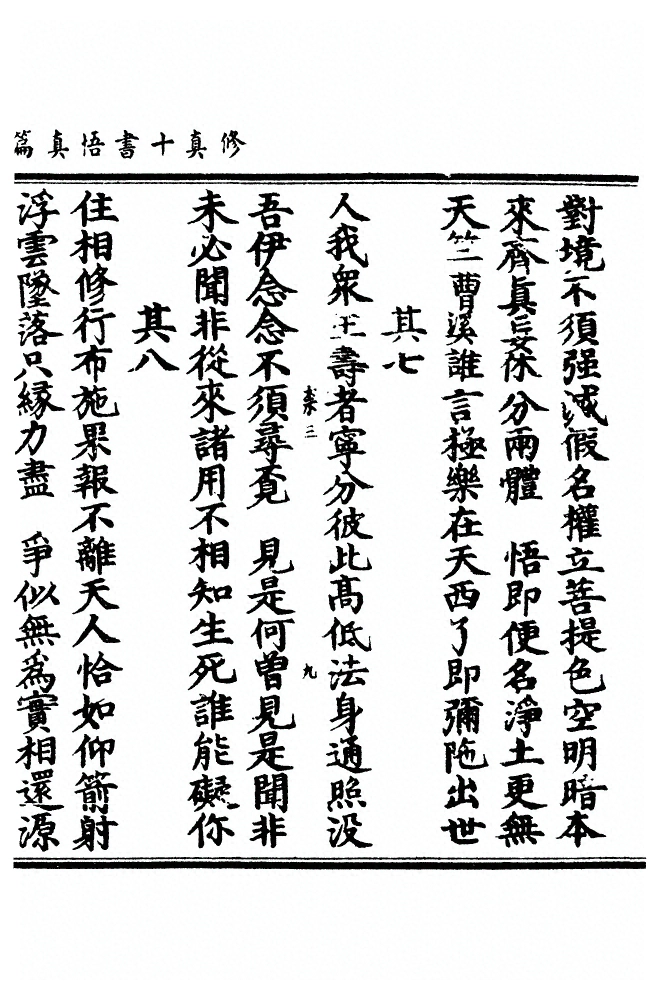 修真十書悟真篇
對境不須强滅假名權立菩提色空明暗本
來齊眞妄休分兩體　悟即便名淨土更無
天竺曹溪誰言極樂在天西了即彌陁出世
其七
人我衆生壽者寧分彼此高低法身通照没
吾伊念念不須尋覔　見是何曾見是聞非
未必聞非從來諸用不相知生死誰能礙你
其八
住相修行布施果報不離天人恰如仰箭射
浮雲墜落只緣力盡　爭似無爲實相還源
三
九